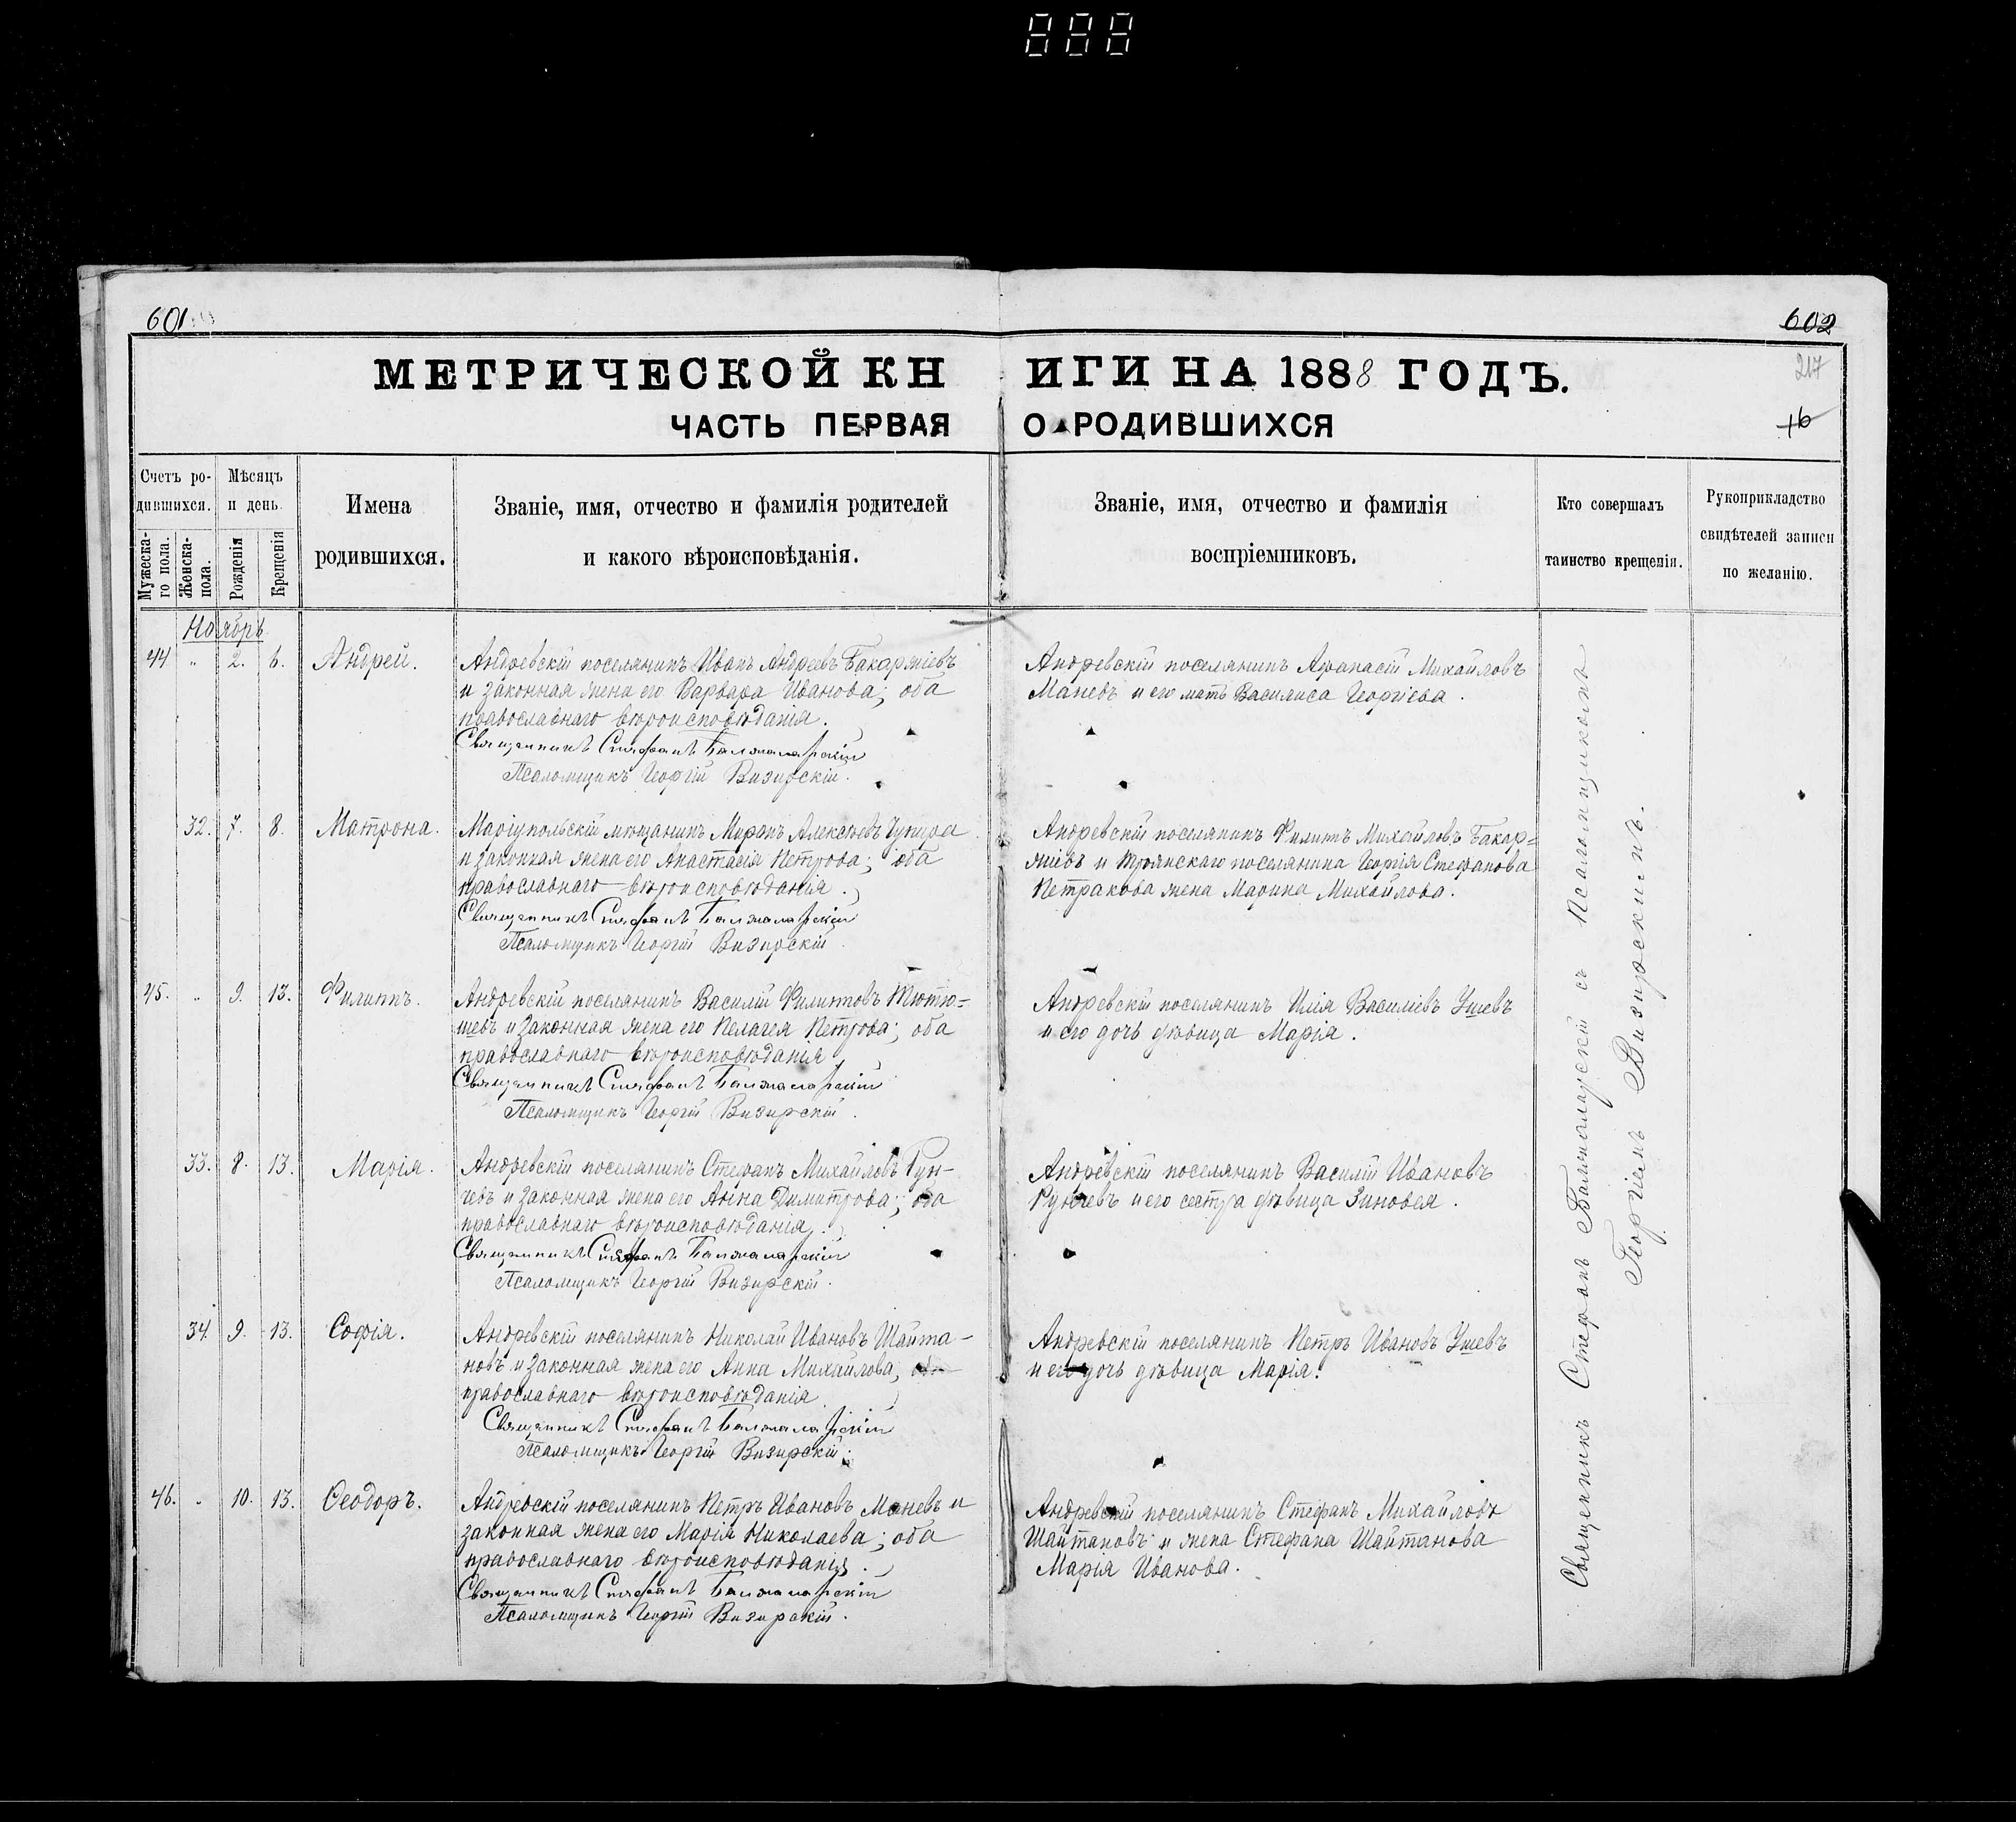 601
602
МЕТРИЧЕСКОЙ КНИГИ НА 1888 ГОДЪ.
217
ЧАСТЬ ПЕРВАЯ О РОДИВШИХСЯ
16
Счетъ родившихся.
Мужескаго пола.
Женска- пола.
Мѣсяцъ и день.
Рожденія
Крещенія
Имена
родившихся.
Званіе, имя, отчество и фамилія родителей
и какого вѣроисповѣданія.
Званіе, имя, отчество и фамилія
воспріемниковъ.
Кто совершалъ
таинство крещенія.
Рукоприкладство
свидѣтелей записи
по желанію.
Ноябрь
44 " 2. 6. Андрей.
Андревскій поселянинъ Иванъ Андреевъ Бакаржіевъ
и законная жена его Варвара Иванова; оба
православнаго вѣроисповѣданія.
Священникъ Стефанъ Балжаларскій
Псаломщикъ Георгій Визирскій.
Андревскій поселянинъ Афанасій Михайловъ
Маневъ и его мать Василиса Георгіева.
32. 7. 8. Матрона.
Маріупольскій мѣщанинъ Миронъ Алексѣевъ
и законная жена его Анастасія Петрова; оба
православнаго вѣроисповѣданія.
Священникъ Стефанъ Балжаларскій
Псаломщикъ Георгій Визирскій
Андревскій поселянинъ Филиппъ Михайловъ Бакар=
жіевъ и Троянскаго поселянина Георгія Стефанова
Петракова жена Марина Михайлова.
45. " 9. 13. Филиппъ.
Андревскій поселянинъ Василій Филипповъ Тютю=
шевъ и законная жена его Пелагея Петрова; оба
православнаго вѣроисповѣданія
Священникъ Стефанъ Балжаларскій
Псаломщикъ Георгій Визирскій.
Андревскій поселянинъ Илія Василіевъ Ушевъ
и его дочь дѣвица Марія.
33. 8. 13. Марія.
Андревскій поселянинъ Стефанъ Михайловъ Рун-
чевъ и законная жена его Анна Димитрова; оба
православнаго вѣроисповѣданія.
Священникъ Стефанъ Балжаларскій
Псаломщикъ Георгій Визирскій.
Андревскій поселянинъ Василій Ивановъ
Рунчевъ и его сестра дѣвица Зиновея.
34. 9. 13. Софія.
Андревскій поселянинъ Николай Ивановъ Шайта-
новъ и законная жена его Анна Михайлова; оба
православнаго вѣроисповѣданія
Священникъ Стефанъ Балжаларскій
Псаломщикъ Георгій Визирскій.
Андревскій поселянинъ Петръ Ивановъ Ушевъ
и его дочь дѣвица Марія.
46. " 10. 13. Ѳеодоръ.
Андревскій поселянинъ Петръ Ивановъ Маневъ и
законная жена его Марія Николаева; оба
православнаго вѣроисповѣданія.
Священникъ Стефанъ Балжаларскій
Псаломщикъ Георгій Визирскій.
Андревскій поселянинъ Стефанъ Михайловъ
Шайтановъ и жена Стефана Шайтанова
Марія Иванова.
Священникъ Стефанъ Балжаларскій съ Псаломщикомъ
Георгіемъ Визирскимъ.